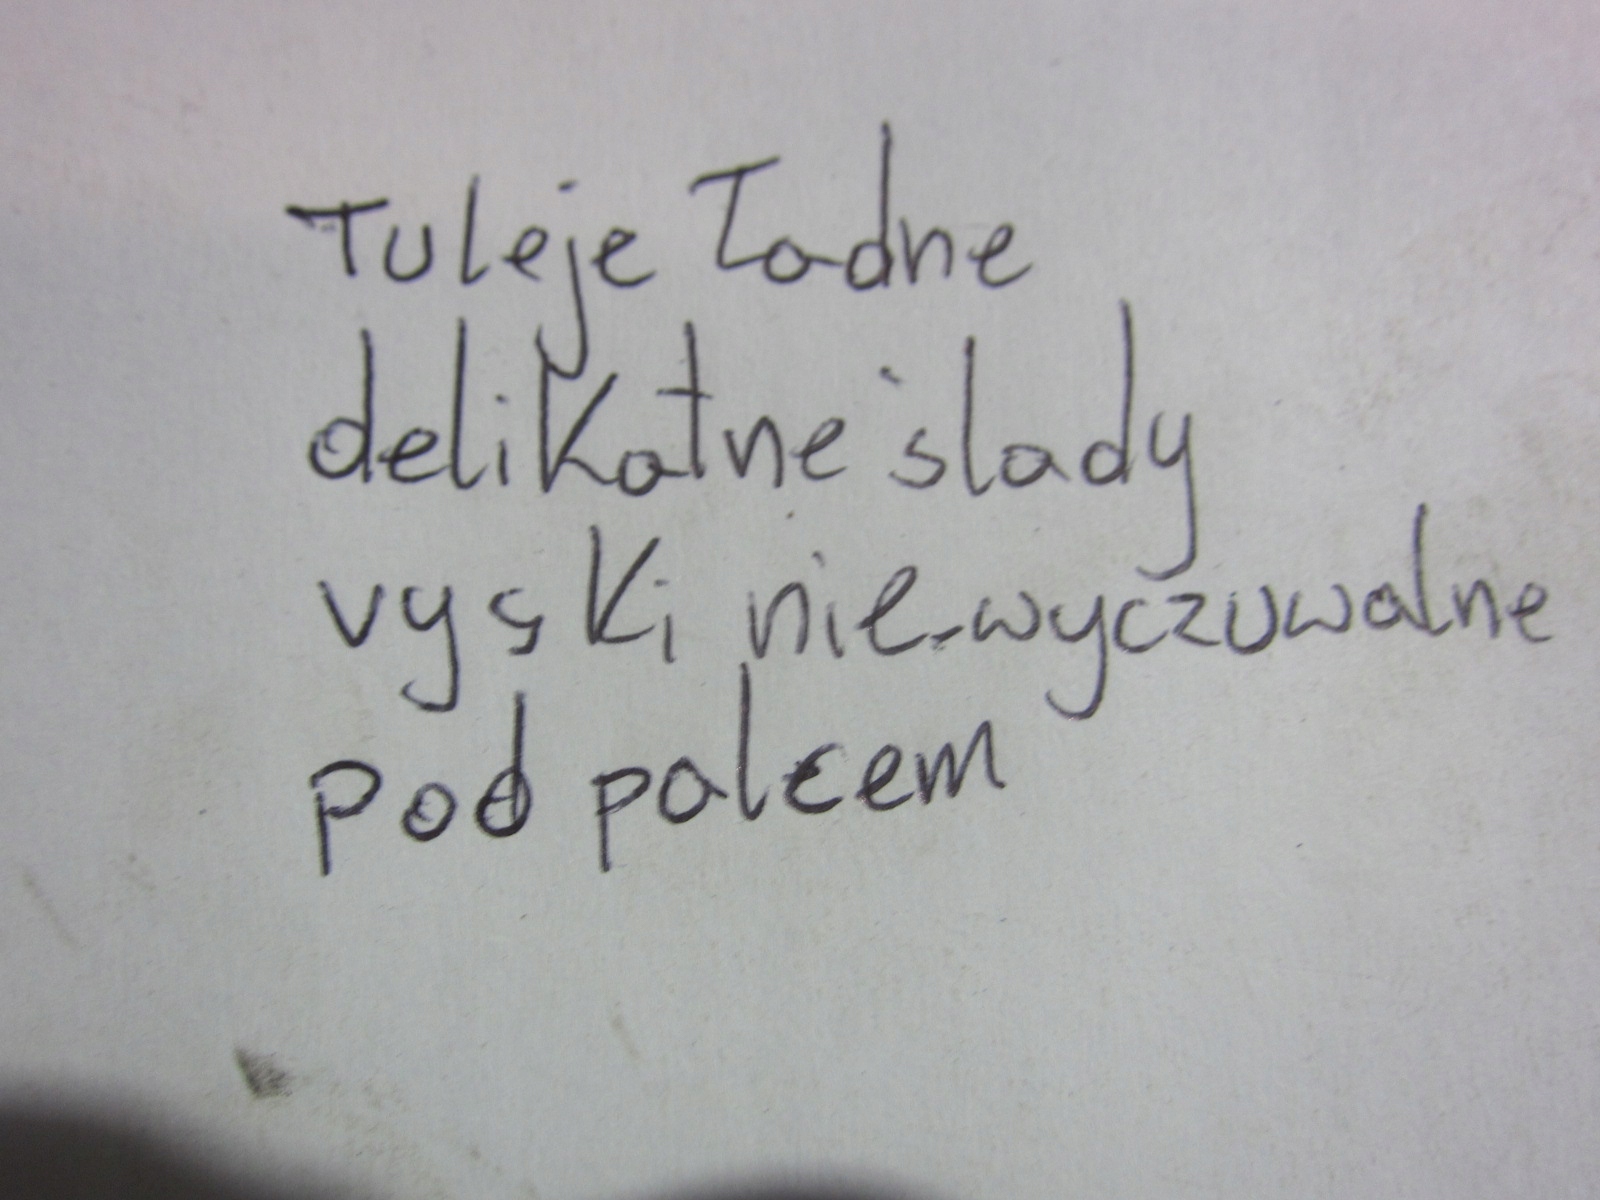 Tuleje ładne
delikatne ślady
vyski nie-wyczuwalne
pod palcem